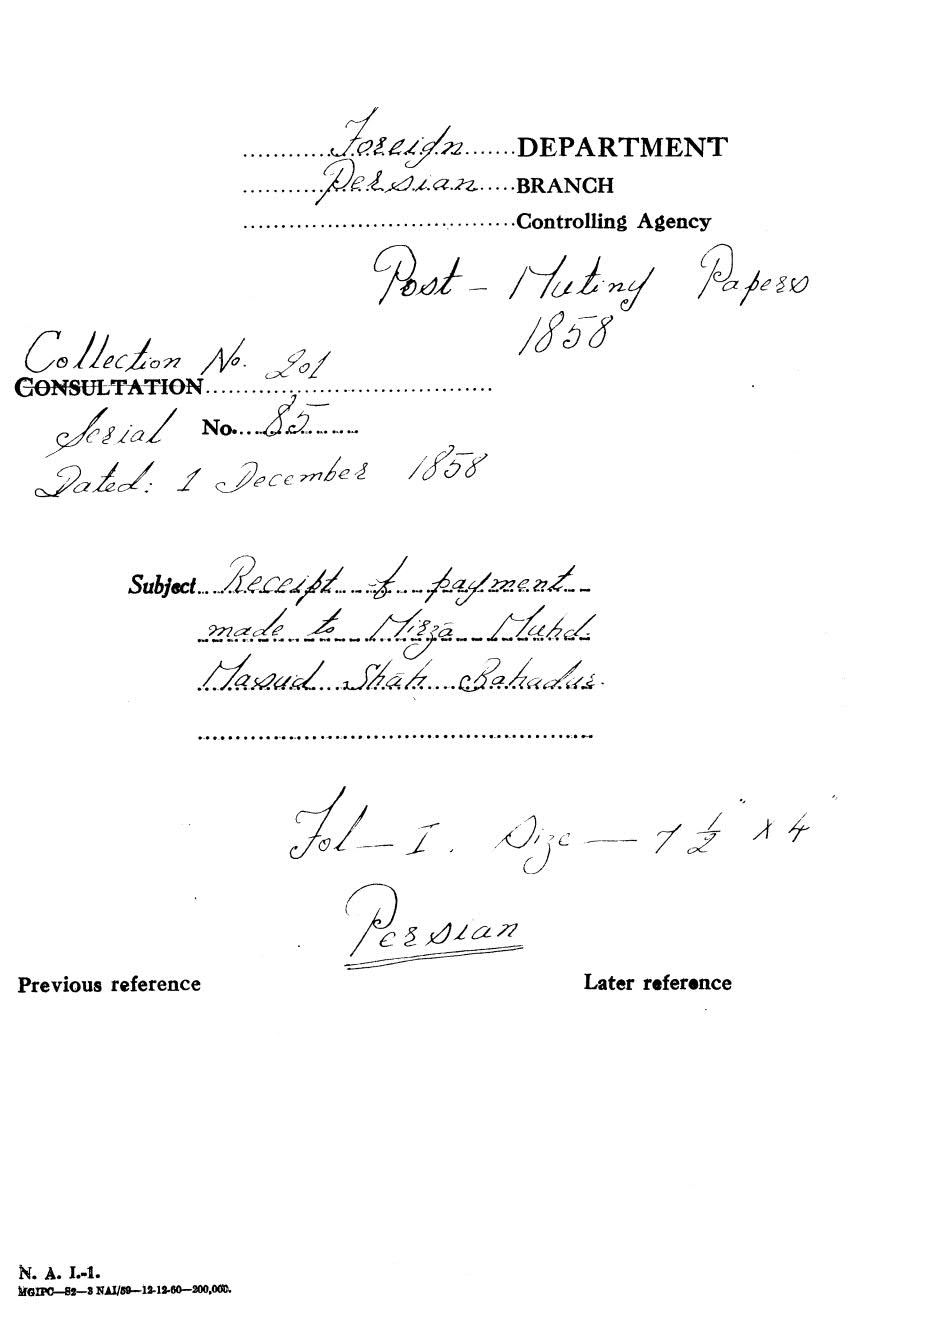 Foreign DEPARTMENT
Persian BRANCH
Controlling Agency
Post - Mutiny Papers
1858
Collection No. 201
CONSULTATION
Serial No. 85
Dated: 1 December 1858
Subject Receipt of payment
made to Mirza Muhd.
Masud Shah Bahadur.
Fol - I. Size - 7 1/2" X 4"
Persian
Previous reference Later reference
N. A. I.-1.
MGIPC—S2—3 NAI/59—12-12-60—200,000.